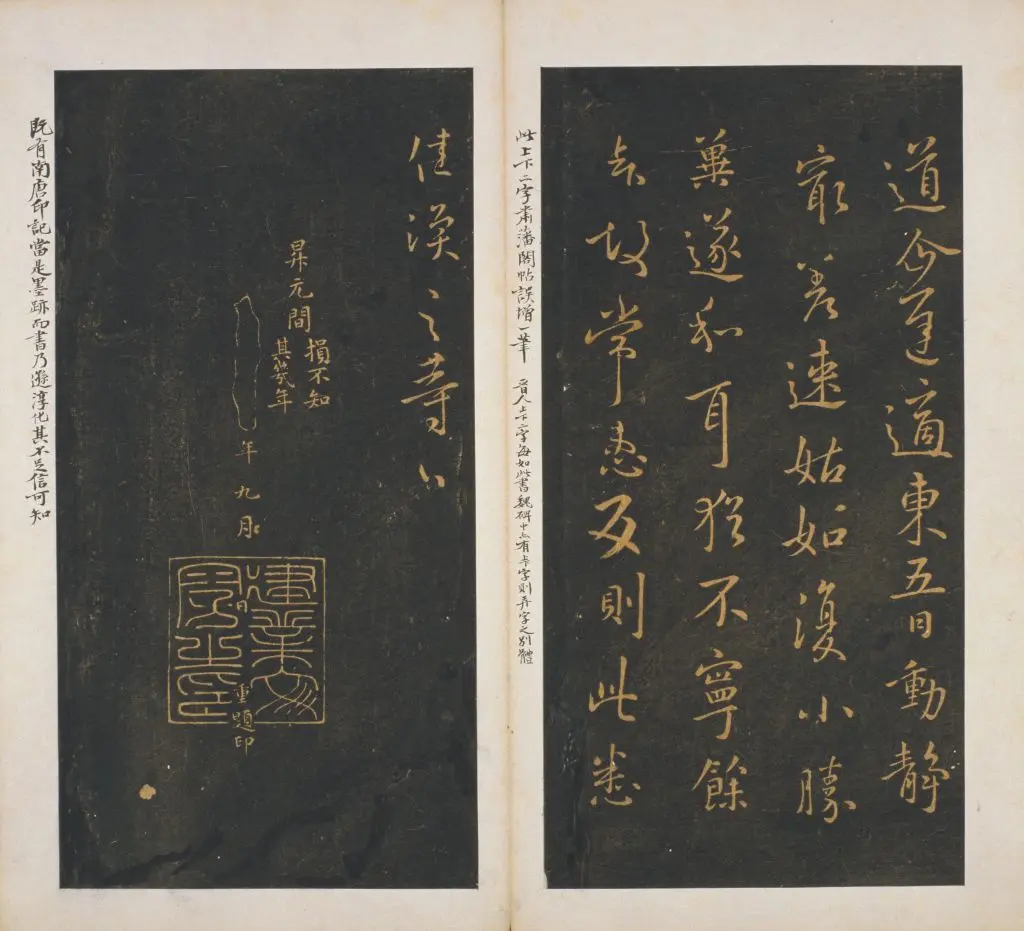 道今運適東五日動静
寂差速姑如復小勝
遂和耳猶不寧餘
卡故常患反則此悉
此上下二字肅藩閣帖誤增一筆 晉人上下二字每如此書魏碑中亦有卡字則弄字之別體
佳漢之等
昇元間
損不知
其幾年
年九月
建業文
房之印
重題印
既有南唐印記當是墨跡而書乃遜淳化其不足信可知